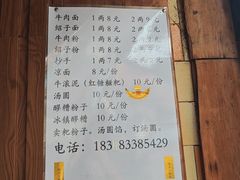 牛肉面 1两8元 2两9元
绍子面 1两8元 2两9元
牛肉粉 1两8元 2两9元
绍子粉 1两8元 2两9元
抄手 1两7元 2两8元
凉面 8元/份
牛滚泥（红糖糍粑）10元/份
汤圆 10元/份
醪糟粉子 10元/份
冰镇醪糟 10元/份
卖粑粉子、汤圆馅，订汤圆。
电话：18383385429